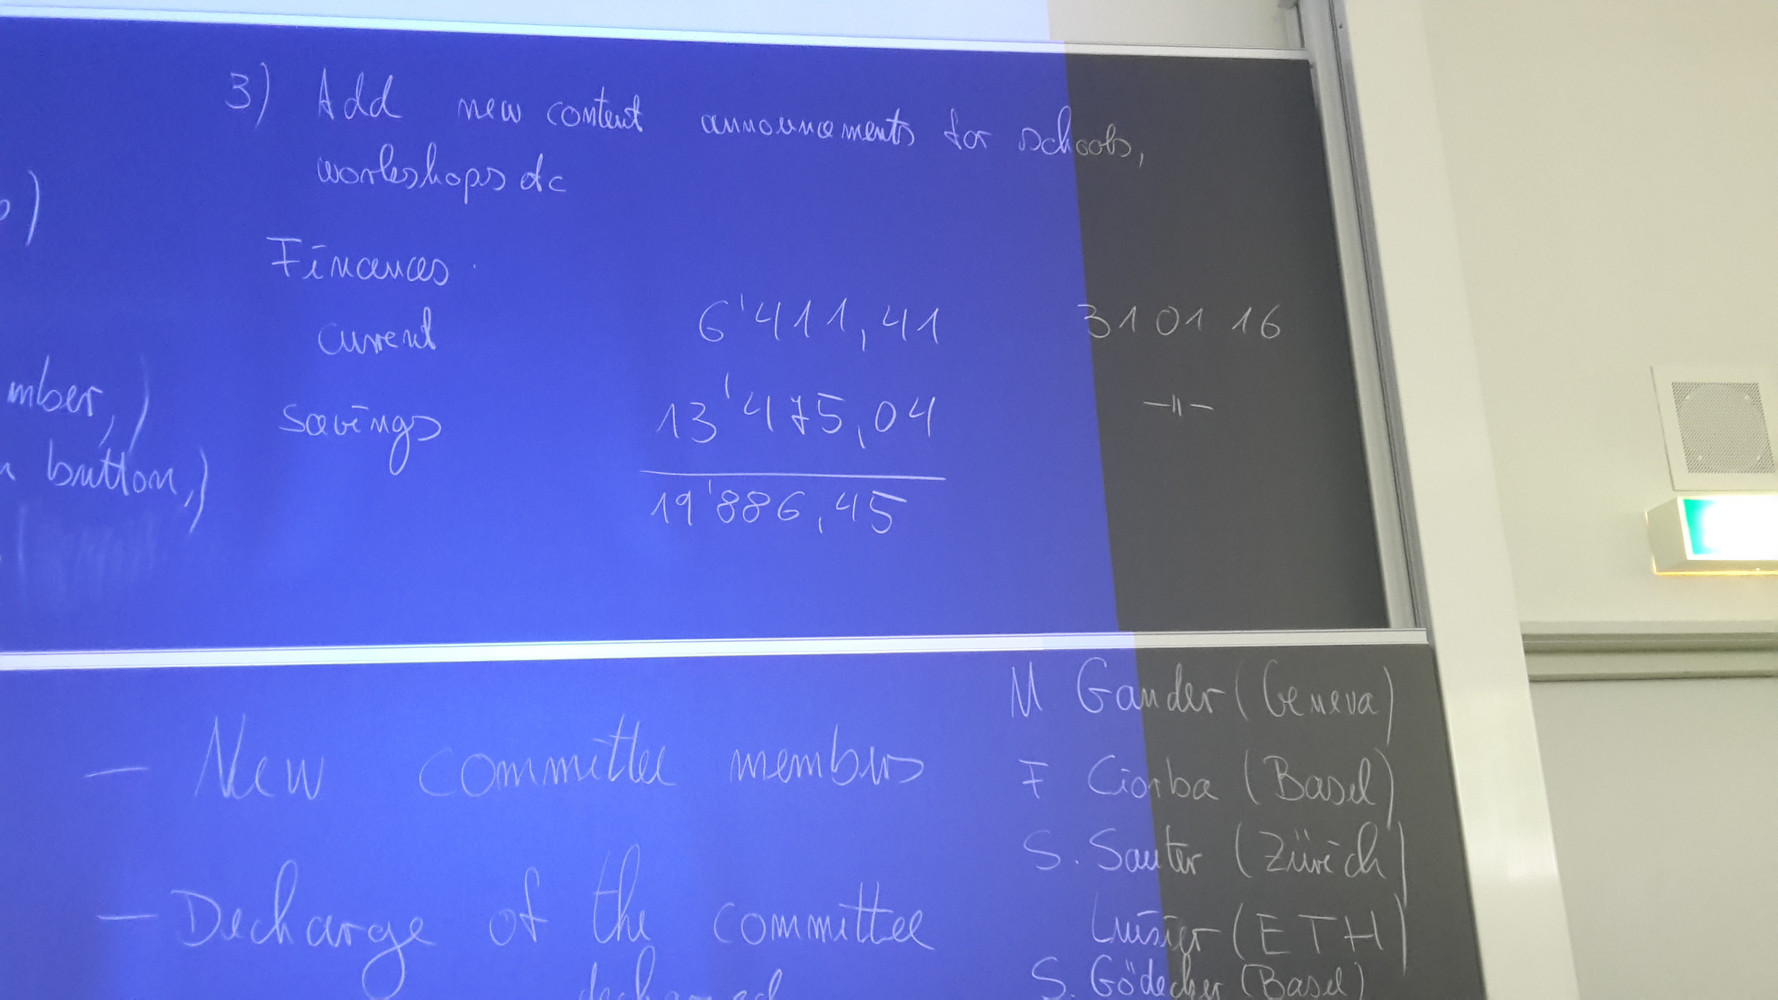 3) Add new content announcements for schools,
workshops etc
)
Finances
current 6'411,41 31 01 16
mber,)
savings 13'475,04 -"-
button,)
19'886,45
M Gander (Geneva)
- New committee members F Ciorba (Basel)
S. Sauter (Zürich)
- Decharge of the committee Luisier (ETH)
decharged S. Gödecker (Basel)